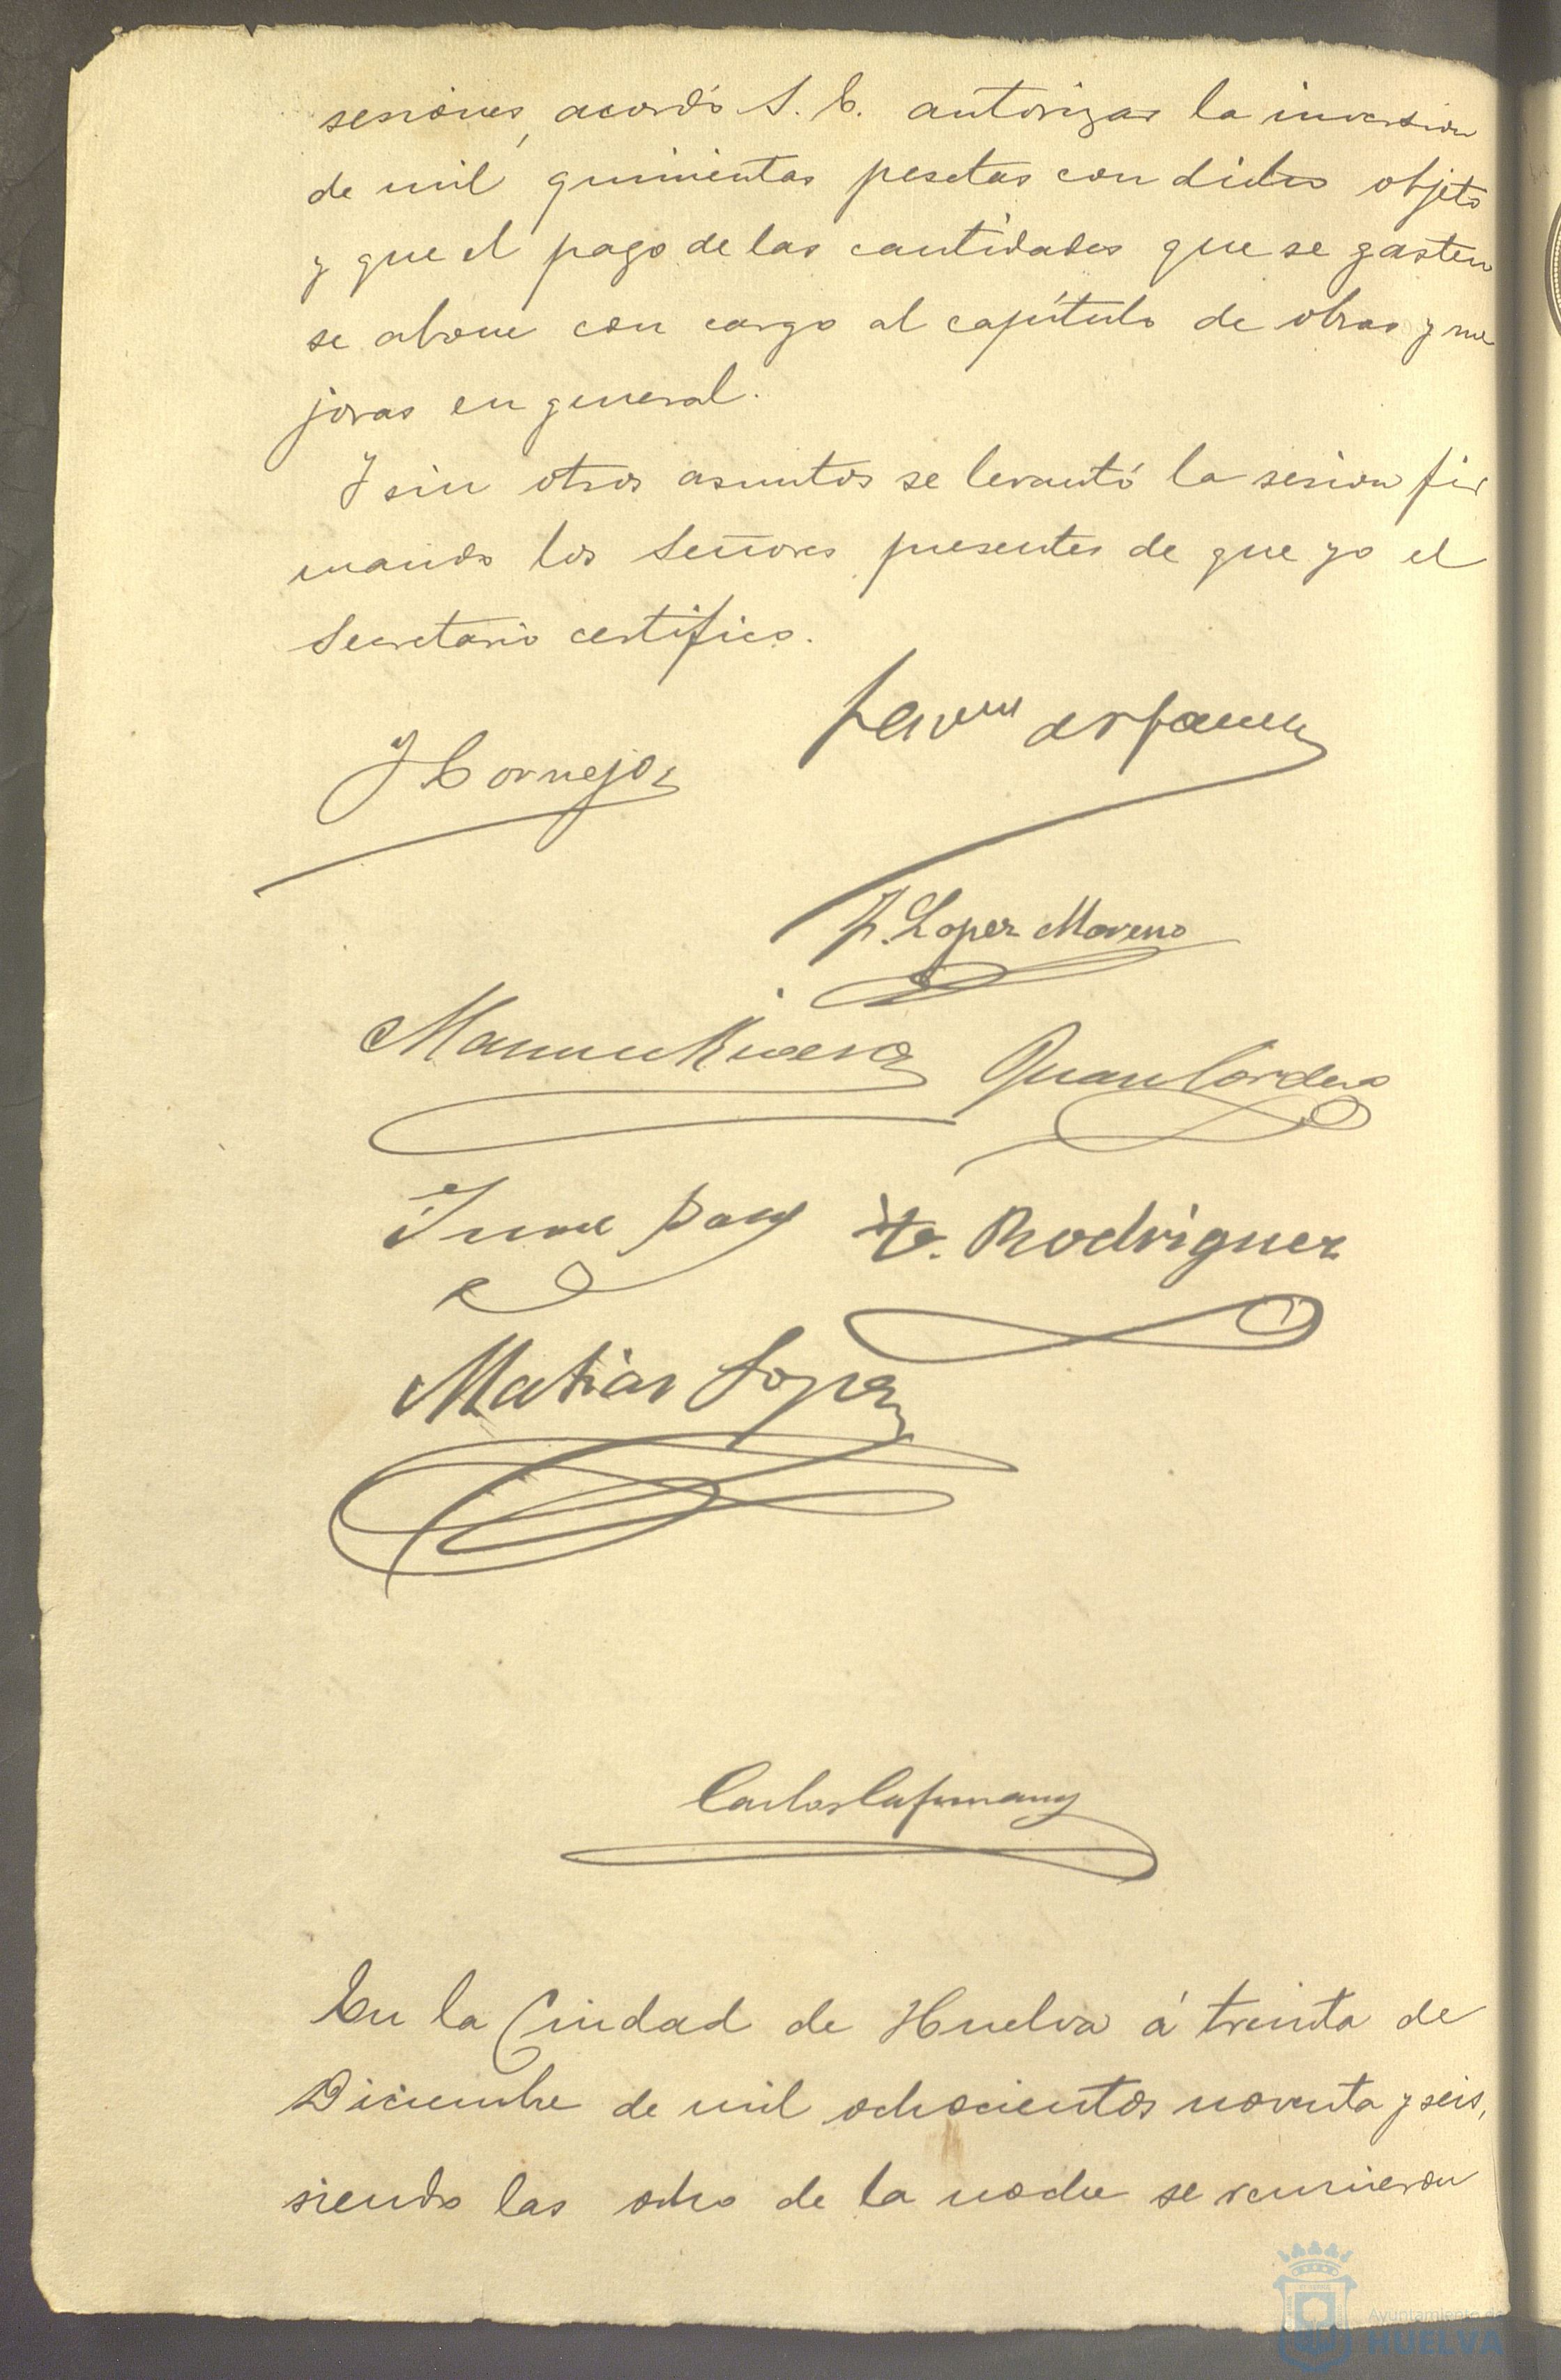 sesiones, acordó S. E. autorizar la inversion
de mil quinientas pesetas con dicho objeto
y que el pago de las cantidades que se gasten
se abone con cargo al capítulo de obras y me
joras en general.
Y sin otros asuntos se levantó la sesion fir
mando los Señores presentes de que yo el
Secretario certifico.
J Cornejo
F. Lopez Moreno
Manuel Rivera Juan Cordero
Rodriguez
Matias Lopez
Carlos
En la Ciudad de Huelva á treinta de
Diciembre de mil ochocientos noventa y seis,
siendo las ocho de la noche se reunieron
Ayuntamiento de
HUELVA